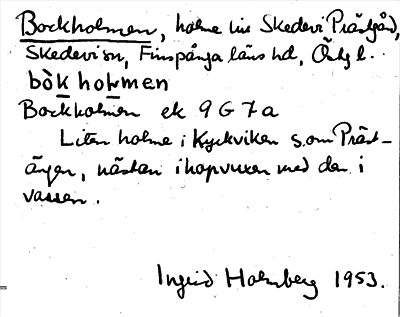 Bockholmen, holme vid Skedevi Prästgård,
Skedevi sn, Finspånga läns hd, Östg l.
bòkhoḷmen
Bockholmen ek 9G7a
Liten holme i Kyrkviken s. om Präst-
ängen, nästan ihopvuxen med den i
vassen.
Ingrid Holmberg 1953.